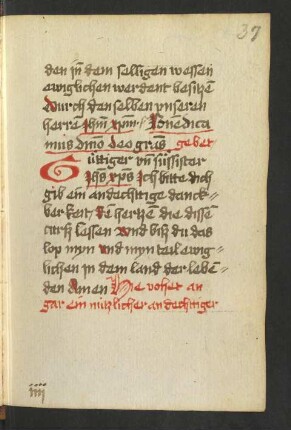 37
den jn dem selligen wessen
ewiglichen werdent besitzen
Durch den selben vnseren
herren jhm xpm Benedica
mus dno deo gras gebet
Güttiger vn süssister
jhs xps Jch bitte dich
gib ein andechttige danck-
berkeit den hertzen die dissen
cursz lessen vnd bisz du das
lop myn vnd myn teil ewig-
lichen jn dem land der leben-
den Amen Hie vohet an
gar ein nützlicher andechtiger
iiij